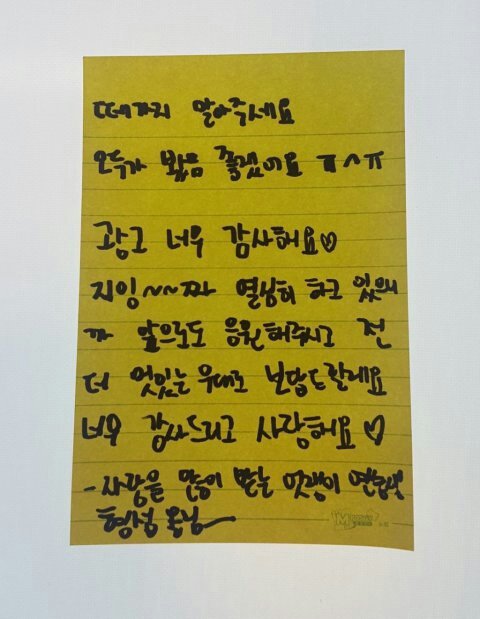 떼가지 말아주세요
오두가 봤음 좋겠어요 ㅠㅅㅠ
광고 너무 감사해요♡
지잉~~짜 열심히 하고 있으니
까 앞으로도 응원해주시고 전
더 멋있는 무대로 보답드릴게요
너무 감사드리고 사랑해요♡
- 사랑을 많이 받는 멋쟁이
형성 올림